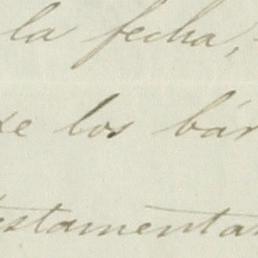 la fecha,
se los bár
estamentar